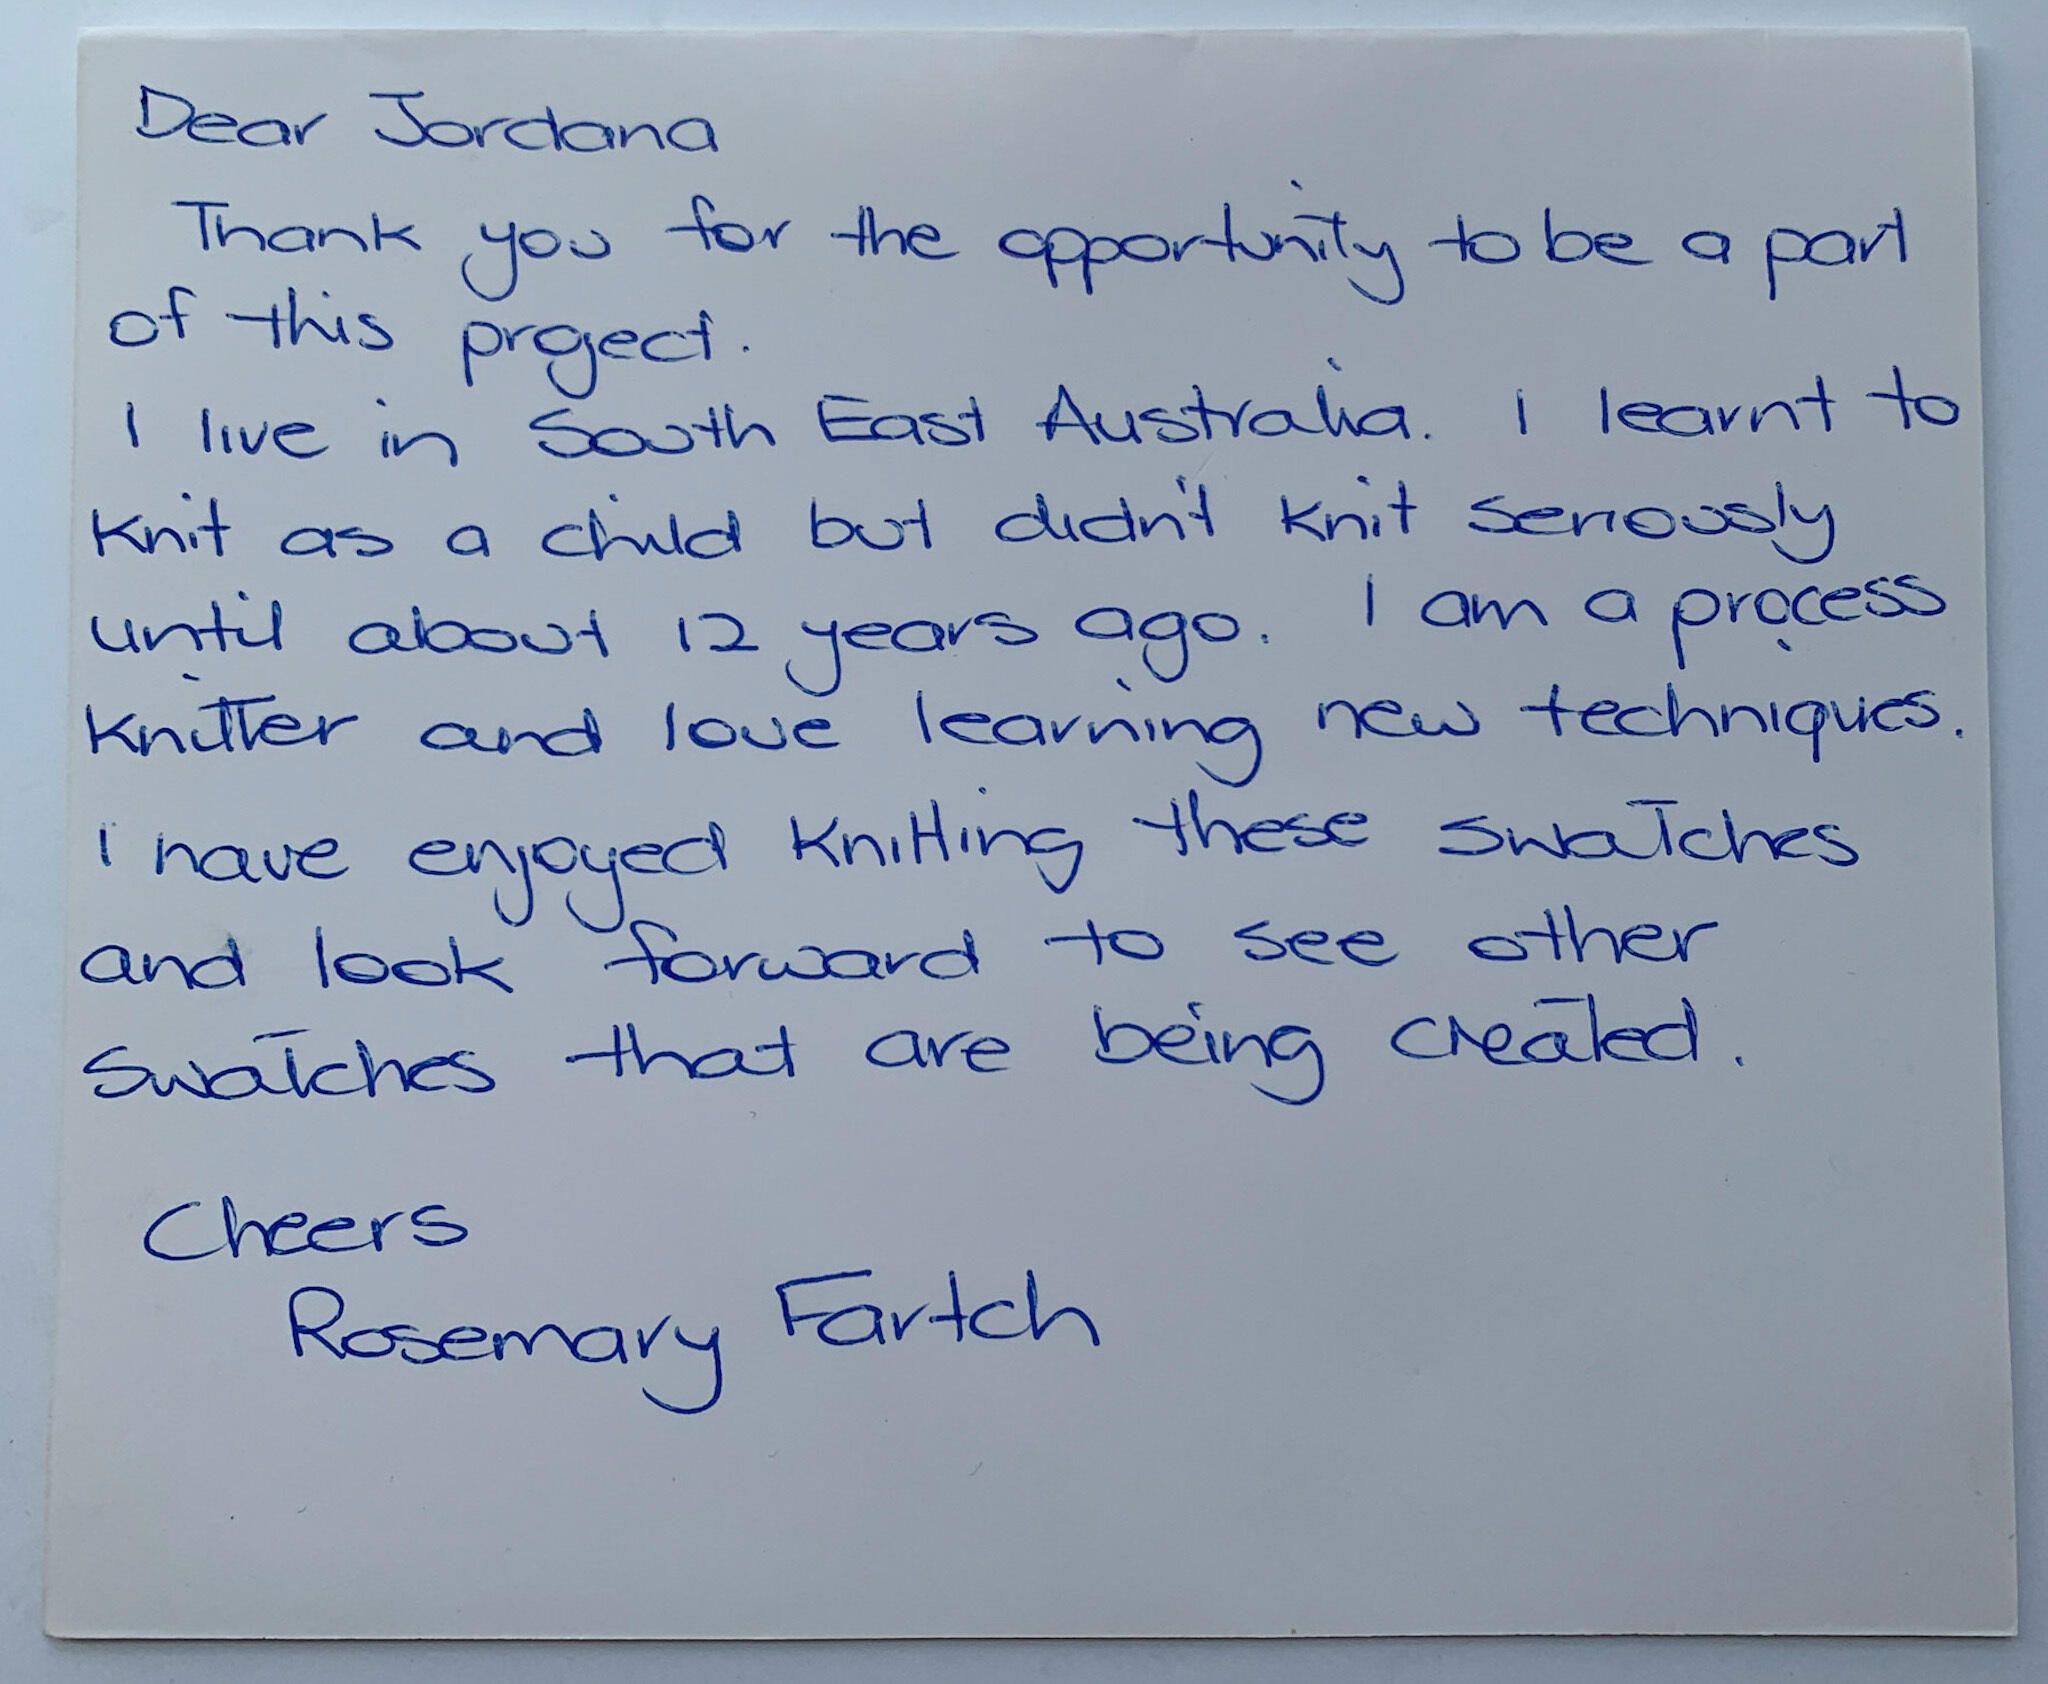 Dear Jordana
Thank you for the opportunity to be a part
of this project.
I live in South East Australia. I learnt to
knit as a child but didn't knit seriously
until about 12 years ago. I am a process
knitter and love learning new techniques.
I have enjoyed knitting these swatches
and look forward to see other
swatches that are being created.
Cheers
Rosemary Fartch